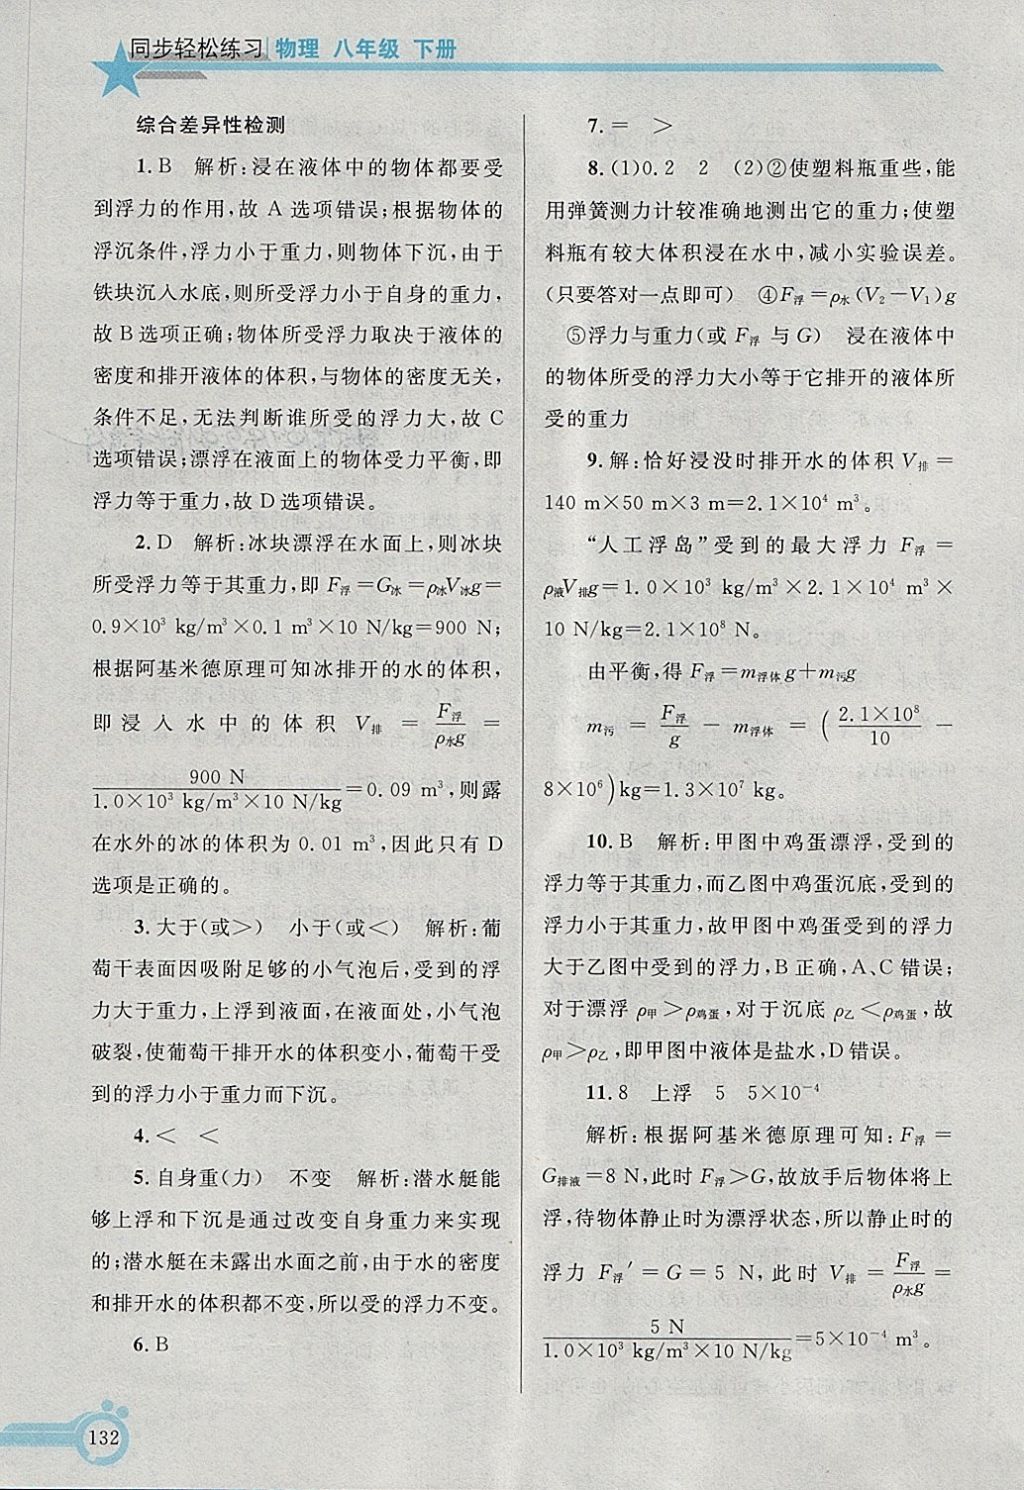 同步轻松练习 物理 八年级 下册
综合差异性检测
1.B 解析:浸在液体中的物体都要受
到浮力的作用,故 A 选项错误;根据物体的
浮沉条件,浮力小于重力,则物体下沉,由于
铁块沉入水底,则所受浮力小于自身的重力,
故 B 选项正确;物体所受浮力取决于液体的
密度和排开液体的体积,与物体的密度无关,
条件不足,无法判断谁所受的浮力大,故 C
选项错误;漂浮在液面上的物体受力平衡,即
浮力等于重力,故 D 选项错误。
2.D 解析:冰块漂浮在水面上,则冰块
所受浮力等于其重力,即 F浮=G冰=ρ冰V冰g=
0.9×10³ kg/m³×0.1 m³×10 N/kg=900 N;
根据阿基米德原理可知冰排开的水的体积,
即浸入水中的体积 V排 = F浮/ρ水g =
900 N/1.0×10³ kg/m³×10 N/kg=0.09 m³,则露
在水外的冰的体积为 0.01 m³,因此只有 D
选项是正确的。
3.大于(或>) 小于(或<) 解析:葡
萄干表面因吸附足够的小气泡后,受到的浮
力大于重力,上浮到液面,在液面处,小气泡
破裂,使葡萄干排开水的体积变小,葡萄干受
到的浮力小于重力而下沉。
4.< <
5.自身重(力) 不变 解析:潜水艇能
够上浮和下沉是通过改变自身重力来实现
的;潜水艇在未露出水面之前,由于水的密度
和排开水的体积都不变,所以受的浮力不变。
6.B
7.= >
8.(1)0.2 2 (2)②使塑料瓶重些,能
用弹簧测力计较准确地测出它的重力;使塑
料瓶有较大体积浸在水中,减小实验误差。
(只要答对一点即可) ④F浮=ρ水(V₂-V₁)g
⑤浮力与重力(或 F浮 与 G) 浸在液体中
的物体所受的浮力大小等于它排开的液体所
受的重力
9.解:恰好浸没时排开水的体积 V排=
140 m×50 m×3 m=2.1×10⁴ m³。
“人工浮岛”受到的最大浮力 F浮=
ρ液V排g=1.0×10³ kg/m³×2.1×10⁴ m³×
10 N/kg=2.1×10⁸ N。
由平衡,得 F浮=m浮体g+m污g
m污 = F浮/g - m浮体 = (2.1×10⁸/10 -
8×10⁶)kg=1.3×10⁷ kg。
10.B 解析:甲图中鸡蛋漂浮,受到的
浮力等于其重力,而乙图中鸡蛋沉底,受到的
浮力小于其重力,故甲图中鸡蛋受到的浮力
大于乙图中受到的浮力,B 正确,A、C 错误;
对于漂浮 ρ甲>ρ鸡蛋,对于沉底 ρ乙<ρ鸡蛋,故
ρ甲>ρ乙,即甲图中液体是盐水,D 错误。
11.8 上浮 5 5×10⁻⁴
解析:根据阿基米德原理可知:F浮=
G排液=8 N,此时 F浮>G,故放手后物体将上
浮,待物体静止时为漂浮状态,所以静止时的
浮力 F浮′=G=5 N,此时 V排 = F浮/ρ水g =
5 N/1.0×10³ kg/m³×10 N/kg=5×10⁻⁴ m³。
132